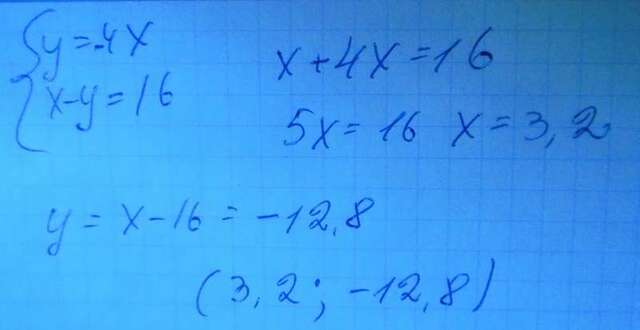 y=-4x
x-y=16
x+4x=16
5x=16 x=3,2
y=x-16=-12,8
(3,2;-12,8)